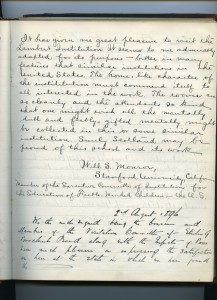 It has given me great pleasure to visit the
Larbert Institution. It seems to me admirably
adapted for its purpose - better in many
features than similar institutions in the
United States. The home-like character of
the institution must commend itself to
all interested in the work. The rooms are
so cleanly and the attendants so kind
that one might wish all the mentally
dull and feebly gifted mentally might
be collected in this or some similar
institution. Surely Scotland may be
proud of this noble work.
Will S. Monroe,
Stanford University, California
Member of the Executive Committee of Institution for
the Education of Feeble Minded Children in the U.S.
2nd August 1894
We the undersigned being the
Members of the Visitation Committee of
along with the Inspector of Poor
much pleasure in expressing the satisfaction
the state in which we